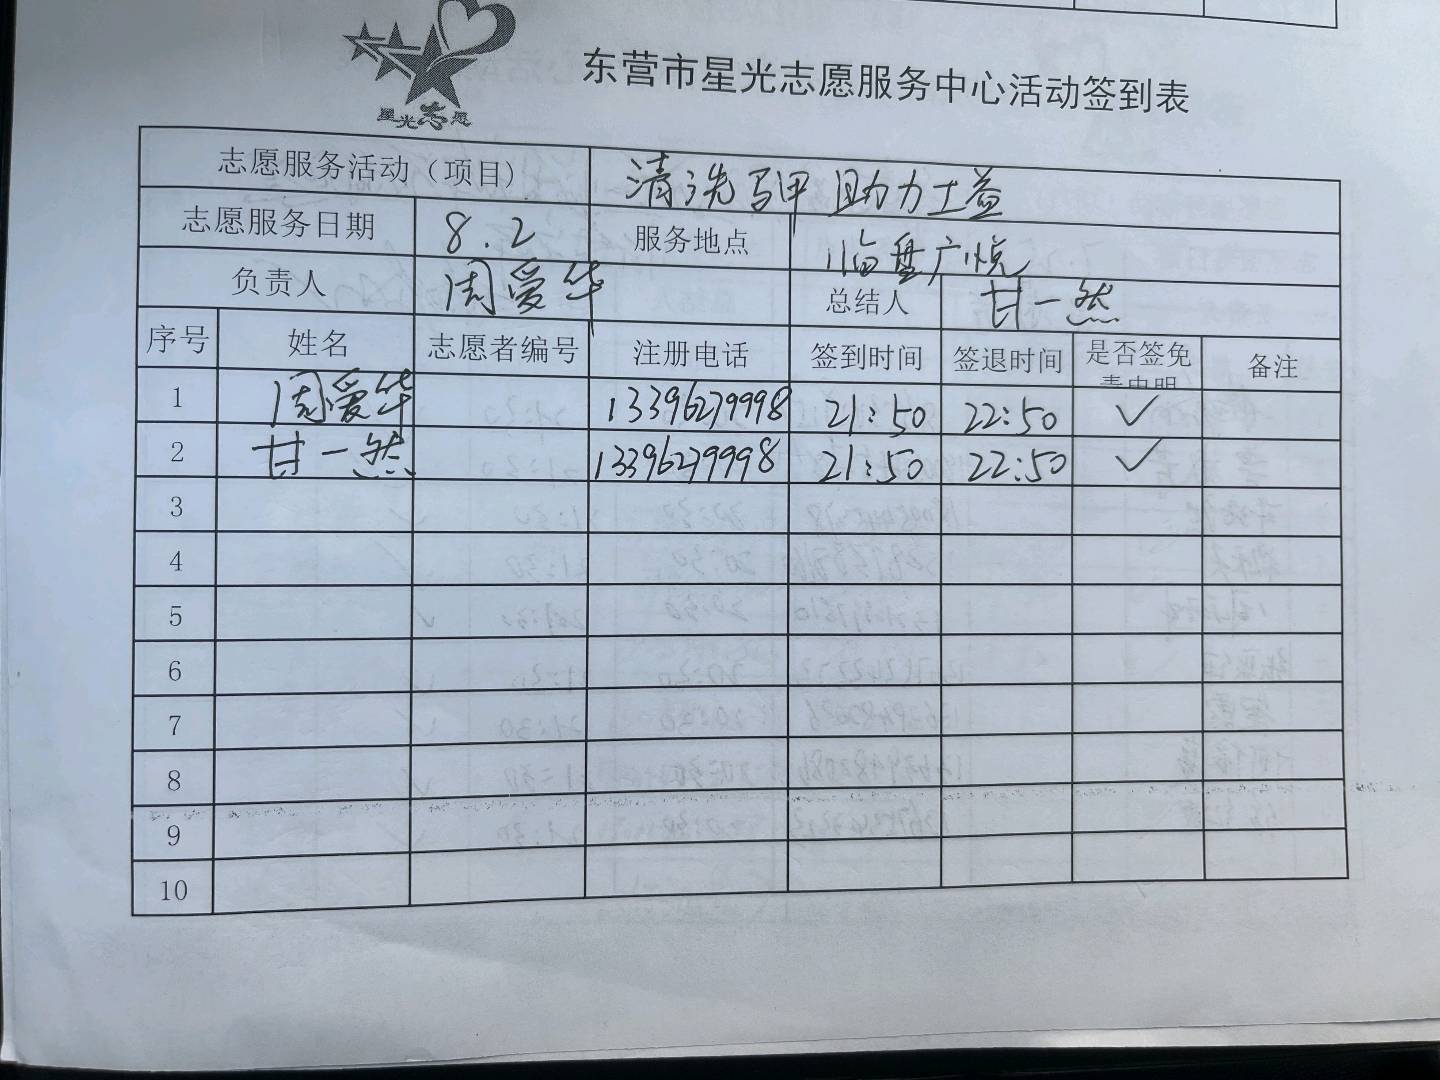 星光志愿
东营市星光志愿服务中心活动签到表
志愿服务活动（项目) 清洗马甲 助力工益
志愿服务日期 8.2 服务地点 临盘广悦
负责人 周爱华 总结人 甘一然
序号 姓名 志愿者编号 注册电话 签到时间 签退时间 是否签免责申明 备注
1 周爱华 13396279998 21:50 22:50 ✓
2 甘一然 13396279998 21:50 22:50 ✓
3
4
5
6
7
8
9
10